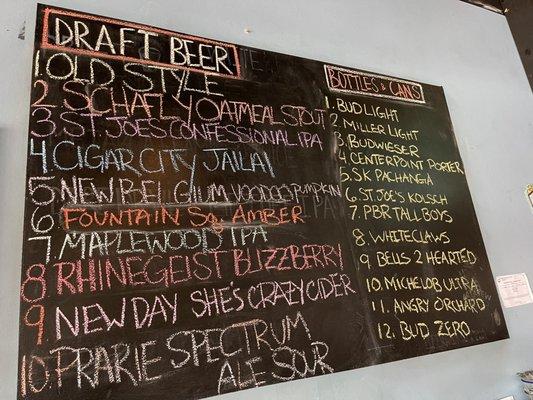 DRAFT BEER
1. OLD STYLE
2. SCHAFLY OATMEAL STOUT
3. ST. JOES CONFESSIONAL IPA
4 CIGAR CITY JAILAI
5 NEW BELGIUM VOODOO PUMPKIN
6. FOUNTAIN SQ. AMBER
7. MAPLEWOOD IPA
8 RHINEGEIST BLIZZBERRY
9 NEW DAY SHE'S CRAZY CIDER
10. PRARIE SPECTRUM
ALE SOUR
BOTTLES & CANS
1. BUD LIGHT
2. MILLER LIGHT
3. BUDWIESER
4 CENTERPOINT PORTER
5. SK PACHANGA
6. ST. JOE'S KOLSCH
7. PBR TALL BOYS
8. WHITECLAWS
9. BELLS 2 HEARTED
10. MICHELOB ULTRA
11. ANGRY ORCHARD
12. BUD ZERO